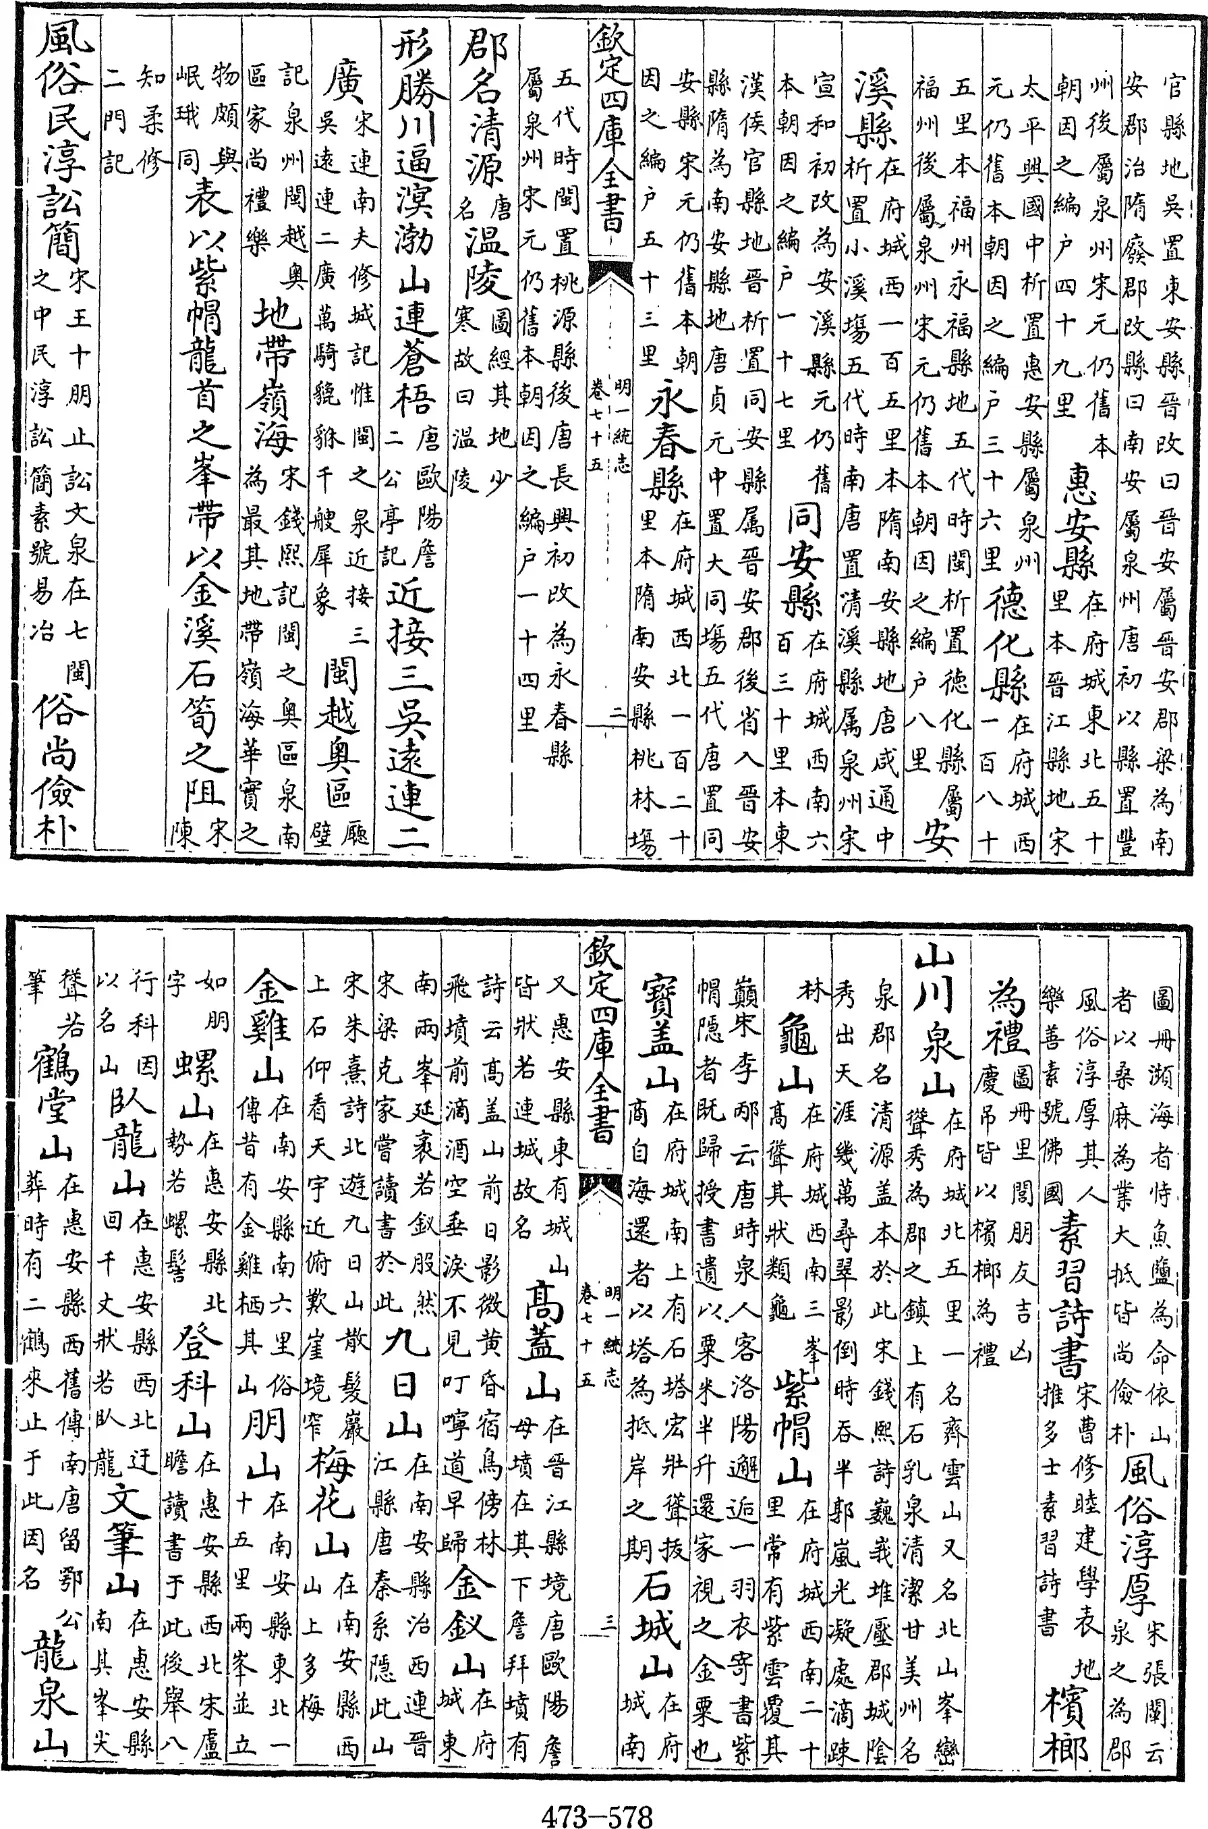 官縣地吳置東安縣晉改曰晉安屬晉安郡梁為南
安郡治隋廢郡改縣曰南安屬泉州唐初以縣置豐
州後屬泉州宋元仍舊本朝因之編户四十九里惠安縣在府城東北五十里本晉江縣地宋
太平興國中析置惠安縣屬泉州元仍舊本朝因之編户三十六里德化縣在府城西一百八十
五里本福州永福縣地五代時閩析置德化縣屬福州後屬泉州宋元仍舊本朝因之編户八里安
溪縣在府城西一百五里本隋南安縣地唐咸通中析置小溪塲五代時南唐置清溪縣属泉州宋
宣和初改為安溪縣元仍舊本朝因之編户一十七里同安縣在府城西南六百三十里本東
漢侯官縣地晉析置同安縣属晉安郡後省入晉安
縣隋為南安縣地唐貞元中置大同塲五代唐置同
安縣宋元仍舊本朝因之編户五十三里永春縣在府城西北一百二十里本隋南安縣桃林塲
欽定四庫全書 明一統志 卷七十五 二
五代時閩置桃源縣後唐長興初改為永春縣
屬泉州宋元仍舊本朝因之編户一十四里
郡名清源唐名温陵圖經其地少寒故曰温陵
形勝川逼溟渤山連蒼梧唐歐陽詹二公亭記近接三吳遠連二
廣宋連南夫修城記惟閩之泉近接三吳遠連二廣萬騎貔貅千艘犀象閩越奥區廳壁
記泉州閩越奥區家尚禮樂地帶嶺海宋錢熙記閩之奥區泉南為最其地帶嶺海華實之
物頗與岷珴同表以紫帽龍首之峯帶以金溪石筍之阻宋陳
知柔修二門記
風俗民淳訟簡宋王十朋止訟文泉在七閩之中民淳訟簡素號易治俗尚儉朴
圖冊瀕海者恃魚鹽為命依山者以桑麻為業大抵皆尚儉朴風俗淳厚宋張闡云泉之為郡
風俗淳厚其人樂善素號佛國素習詩書宋曹修睦建學表地推多士素習詩書檳榔
為禮圖冊里閭朋友吉凶慶吊皆以檳榔為禮
山川泉山在府城北五里一名齊雲山又名北山峯巒聳秀為郡之鎮上有石乳泉清潔甘美州名
泉郡名清源盖本於此宋錢熙詩巍峩堆壓郡城陰
秀出天涯幾萬尋翠影倒時吞半郭嵐光凝處滴踈
林龜山在府城西南三峯高聳其狀類龜紫帽山在府城西南二十里常有紫雲覆其
巔宋李邴云唐時泉人客洛陽邂逅一羽衣寄書紫
帽隱者既歸授書遺以粟米半升還家視之金粟也
寳盖山在府城南上有石塔宏壯聳拔商自海還者以塔為抵岸之期石城山在府城南
欽定四庫全書 明一統志 卷七十五 三
又惠安縣東有城山皆狀若連城故名髙蓋山在晉江縣境唐歐陽詹母墳在其下詹拜墳有
詩云髙盖山前日影微黄昏宿鳥傍林飛墳前滴酒空垂淚不見叮嚀道早歸金釵山在府城東
南兩峯延袤若釵股然宋梁克家嘗讀書於此九日山在南安縣治西連晉江縣唐秦系隱此山
宋朱熹詩北遊九日山散髮巖上石仰看天宇近俯歎崖境窄梅花山在南安縣西山上多梅
金雞山在南安縣南六里俗傳昔有金雞栖其山朋山在南安縣東北一十五里兩峯並立
如朋字螺山在惠安縣北勢若螺髻登科山在惠安縣西北宋盧瞻讀書于此後舉八
行科因以名山臥龍山在惠安縣西北迂回千丈狀若臥龍文筆山在惠安縣南其峯尖
聳若筆鶴堂山在惠安縣西舊傳南唐留鄂公葬時有二鶴來止于此因名龍泉山
473-578